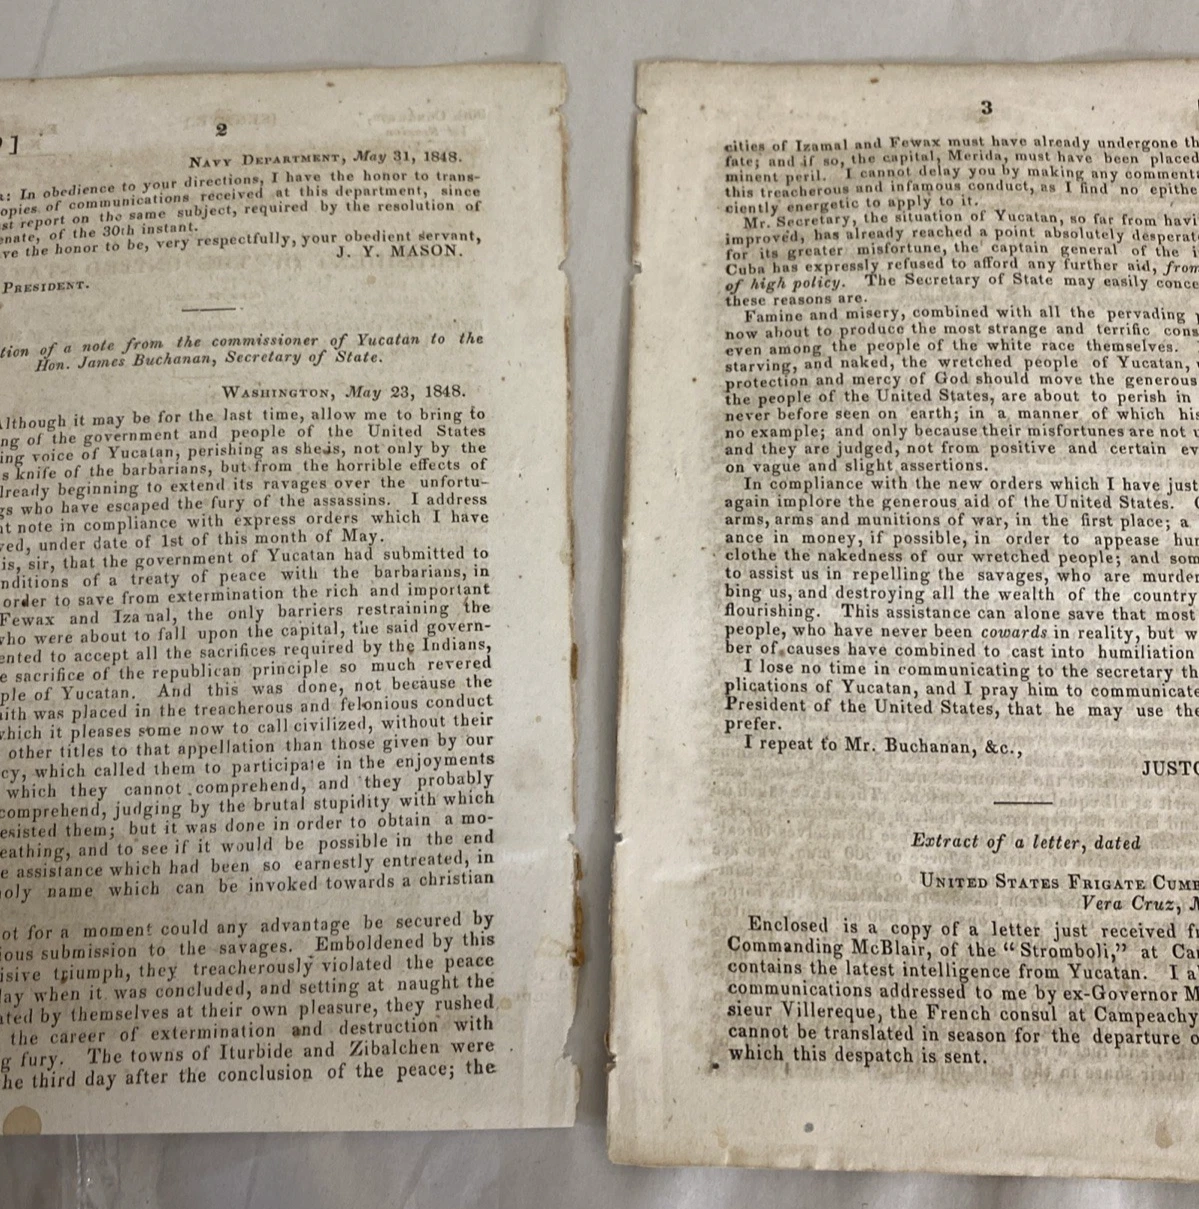 ]
2
NAVY DEPARTMENT, May 31, 1848.
: In obedience to your directions, I have the honor to trans-
opies of communications received at this department, since
st report on the same subject, required by the resolution of
enate, of the 30th instant.
ve the honor to be, very respectfully, your obedient servant,
J. Y. MASON.
PRESIDENT.
tion of a note from the commissioner of Yucatan to the
Hon. James Buchanan, Secretary of State.
WASHINGTON, May 23, 1848.
Although it may be for the last time, allow me to bring to
ng of the government and people of the United States
ing voice of Yucatan, perishing as she is, not only by the
s knife of the barbarians, but from the horrible effects of
lready beginning to extend its ravages over the unfortu-
gs who have escaped the fury of the assassins. I address
nt note in compliance with express orders which I have
ved, under date of 1st of this month of May.
is, sir, that the government of Yucatan had submitted to
nditions of a treaty of peace with the barbarians, in
order to save from extermination the rich and important
Fewax and Iza nal, the only barriers restraining the
who were about to fall upon the capital, the said govern-
ented to accept all the sacrifices required by the Indians,
e sacrifice of the republican principle so much revered
ple of Yucatan. And this was done, not because the
aith was placed in the treacherous and felonious conduct
which it pleases some now to call civilized, without their
other titles to that appellation than those given by our
cy, which called them to participate in the enjoyments
which they cannot comprehend, and they probably
comprehend, judging by the brutal stupidity with which
esisted them; but it was done in order to obtain a mo-
eathing, and to see if it would be possible in the end
e assistance which had been so earnestly entreated, in
holy name which can be invoked towards a christian
ot for a moment could any advantage be secured by
ious submission to the savages. Emboldened by this
isive triumph, they treacherously violated the peace
lay when it was concluded, and setting at naught the
ated by themselves at their own pleasure, they rushed
the career of extermination and destruction with
g fury. The towns of Iturbide and Zibalchen were
he third day after the conclusion of the peace; the
3
cities of Izamal and Fewax must have already undergone th
fate; and if so, the capital, Merida, must have been placed
minent peril. I cannot delay you by making any comment
this treacherous and infamous conduct, as I find no epithe
ciently energetic to apply to it.
Mr. Secretary, the situation of Yucatan, so far from havi
improved, has already reached a point absolutely desperat
for its greater misfortune, the captain general of the i
Cuba has expressly refused to afford any further aid, from
of high policy. The Secretary of State may easily conce
these reasons are.
Famine and misery, combined with all the pervading
now about to produce the most strange and terrific cons
even among the people of the white race themselves.
starving, and naked, the wretched people of Yucatan,
protection and mercy of God should move the generous
the people of the United States, are about to perish in
never before seen on earth; in a manner of which his
no example; and only because their misfortunes are not
and they are judged, not from positive and certain ev
on vague and slight assertions.
In compliance with the new orders which I have just
again implore the generous aid of the United States.
arms, arms and munitions of war, in the first place; a
ance in money, if possible, in order to appease hun
clothe the nakedness of our wretched people; and som
to assist us in repelling the savages, who are murder
bing us, and destroying all the wealth of the country
flourishing. This assistance can alone save that most
people, who have never been cowards in reality, but w
ber of causes have combined to cast into humiliation
I lose no time in communicating to the secretary th
plications of Yucatan, and I pray him to communicate
President of the United States, that he may use the
prefer.
I repeat to Mr. Buchanan, &c.,
JUSTO
Extract of a letter, dated
UNITED STATES FRIGATE CUMB
Vera Cruz,
Enclosed is a copy of a letter just received f
Commanding McBlair, of the "Stromboli," at Ca
contains the latest intelligence from Yucatan. I a
communications addressed to me by ex-Governor M
sieur Villereque, the French consul at Campeachy
cannot be translated in season for the departure o
which this despatch is sent.